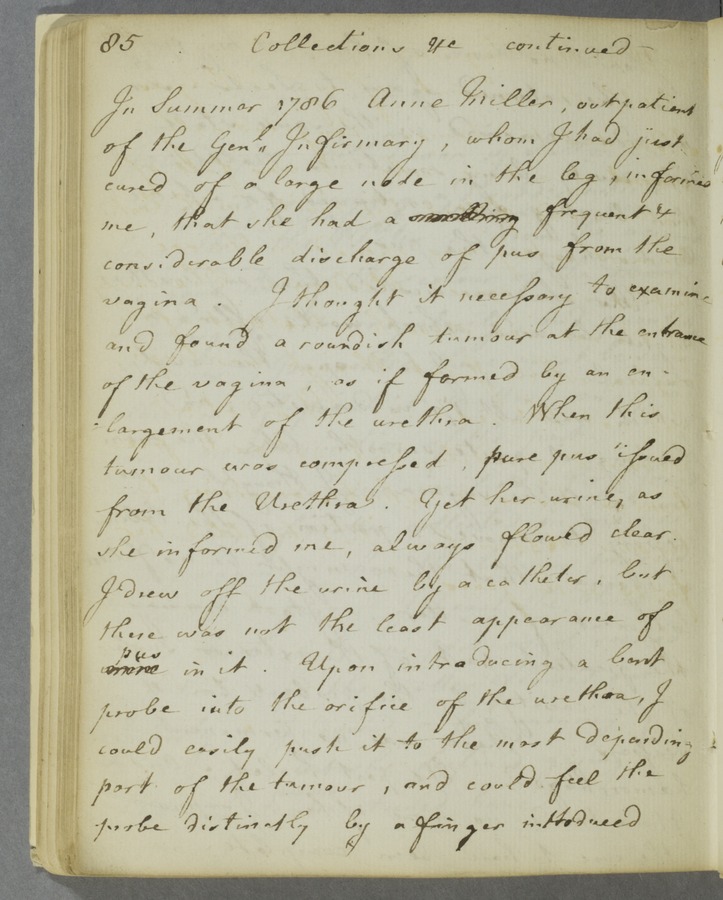 85 Collections &c continued -
In Summer 1786 Anne Miller, outpatient
of the Gen.l Infirmary, whom I had just
cured of a large node in the leg, informed
me, that she had a frequent &
considerable discharge of pus from the
vagina. I thought it necessary to examine
and found a roundish tumour at the entrance
of the vagina, as if formed by an en-
-largement of the urethra. When this
tumour was compressed, pure pus issued
from the Urethra. Yet her urine, as
she informed me, always flowed clear.
I drew off the urine by a catheter, but
there was not the least appearance of
pus in it. Upon introducing a bent
probe into the orifice of the urethra, I
could easily push it to the most depending
part of the tumour, and could feel the
probe distinctly by a finger introduced